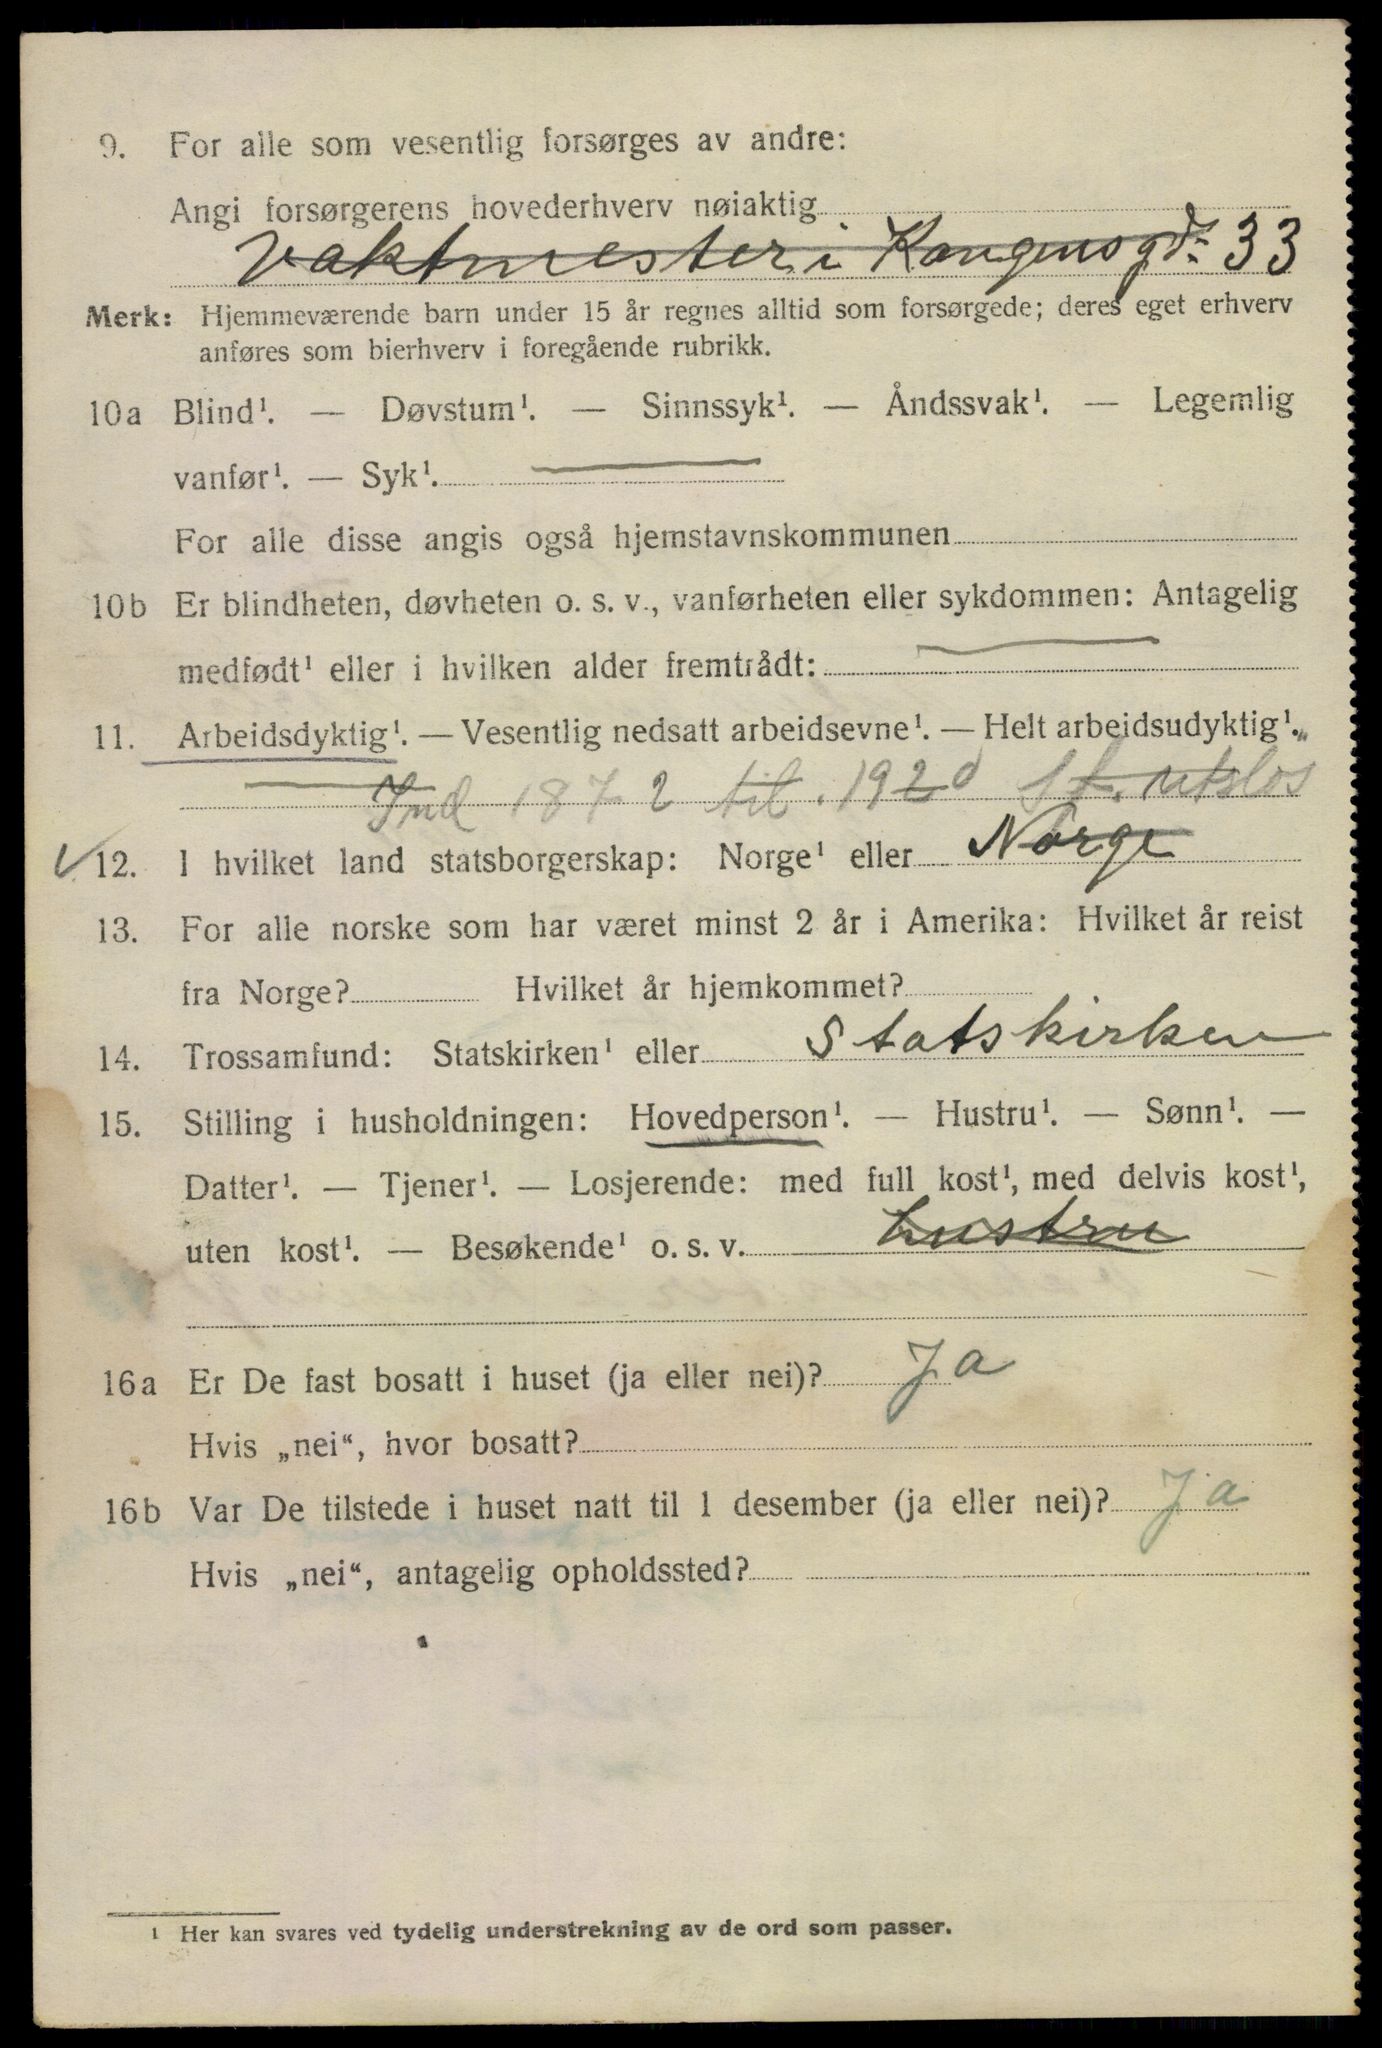 9. For alle som vesentlig forsørges av andre:
Angi forsørgerens hovederhverv nøiaktig
Vaktmester i Kongensgd. 33
Merk: Hjemmeværende barn under 15 år regnes alltid som forsørgede; deres eget erhverv
anføres som bierhverv i foregående rubrikk.
10a Blind¹. — Døvstum¹. — Sinnssyk¹. — Åndssvak¹. — Legemlig
vanfør¹. — Syk¹.
For alle disse angis også hjemstavnskommunen
10b Er blindheten, døvheten o. s. v., vanførheten eller sykdommen: Antagelig
medfødt¹ eller i hvilken alder fremtrådt:
11. Arbeidsdyktig¹. — Vesentlig nedsatt arbeidsevne¹. — Helt arbeidsudyktig¹.
Ind 1872 til. 1920 St.
12. I hvilket land statsborgerskap: Norge¹ eller Norge
13. For alle norske som har været minst 2 år i Amerika: Hvilket år reist
fra Norge? Hvilket år hjemkommet?
14. Trossamfund: Statskirken¹ eller Statskirken
15. Stilling i husholdningen: Hovedperson¹. — Hustru¹. — Sønn¹. —
Datter¹. — Tjener¹. — Losjerende: med full kost¹, med delvis kost¹,
uten kost¹. — Besøkende¹ o. s. v. hustru
16a Er De fast bosatt i huset (ja eller nei)? Ja
Hvis „nei“, hvor bosatt?
16b Var De tilstede i huset natt til 1 desember (ja eller nei)? Ja
Hvis „nei“, antagelig opholdssted?
¹ Her kan svares ved tydelig understrekning av de ord som passer.